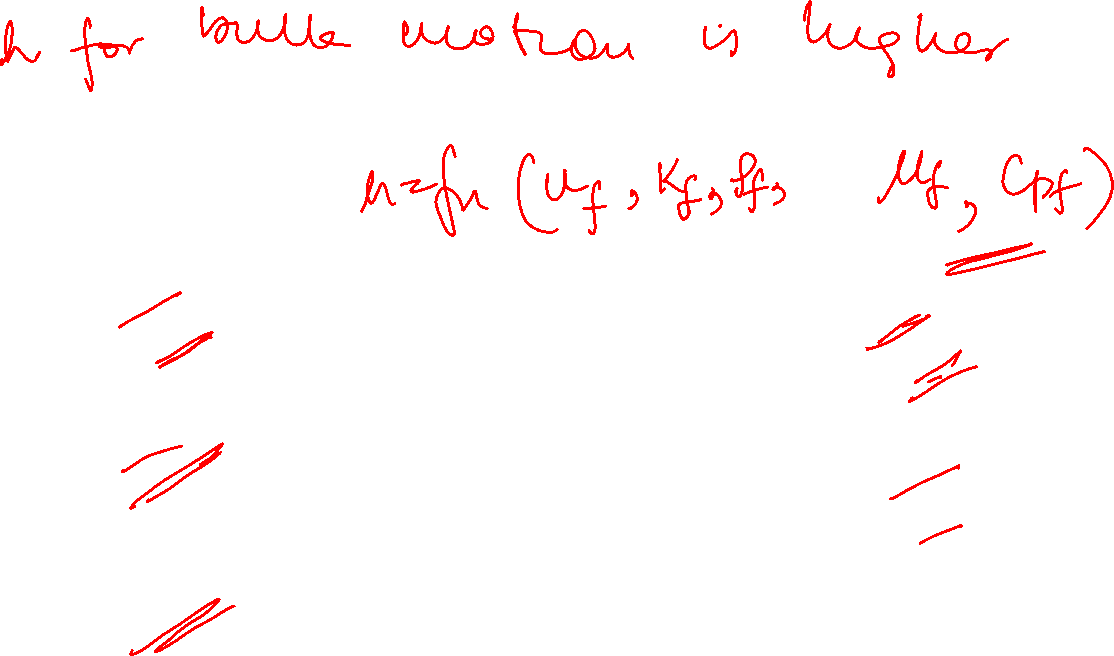 h for bulk motion is higher
h = fn (u_f, K_f, ρ_f, μ_f, Cp_f)